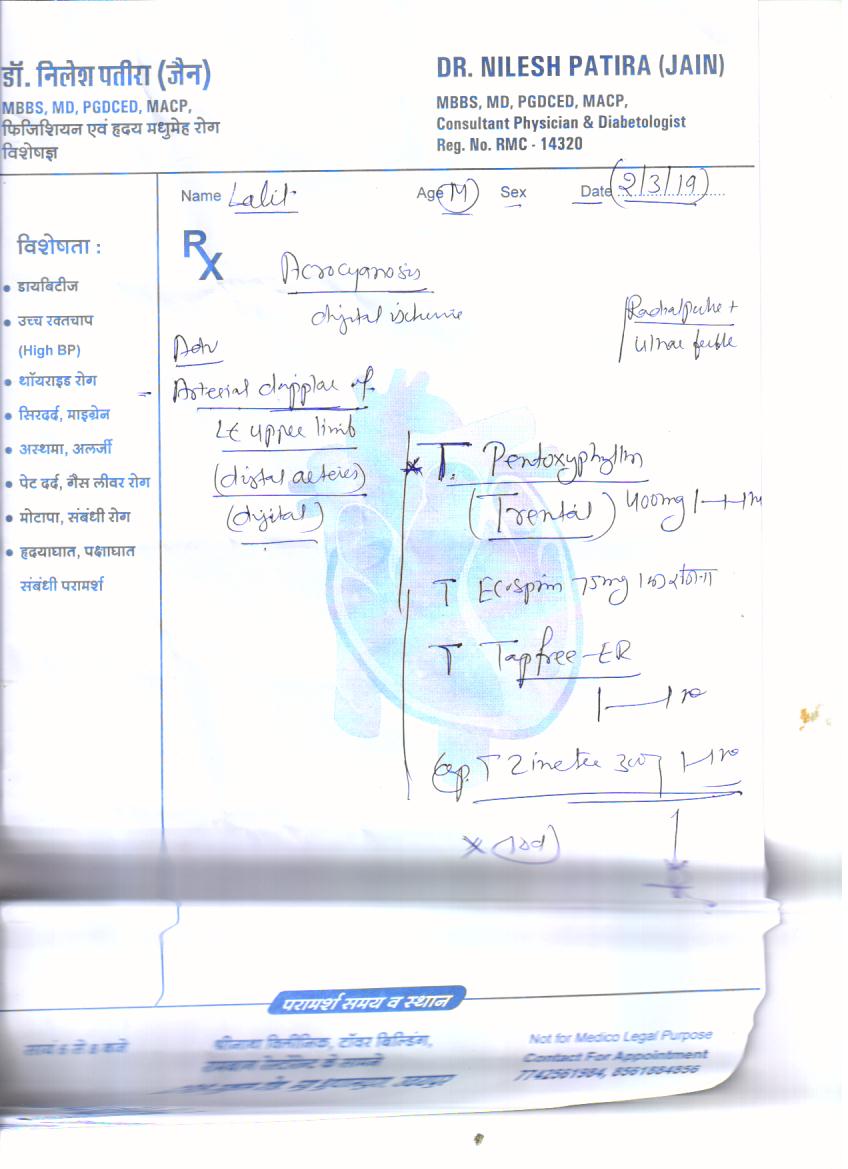 डॉ. निलेश पतीरा (जैन)
MBBS, MD, PGDCED, MACP,
फिजिशियन एवं हृदय मधुमेह रोग
विशेषज्ञ
DR. NILESH PATIRA (JAIN)
MBBS, MD, PGDCED, MACP,
Consultant Physician & Diabetologist
Reg. No. RMC - 14320
Name Lalit Age M Sex Date 2/3/19
विशेषता :
• डायबिटीज
• उच्च रक्तचाप
(High BP)
• थॉयराइड रोग
• सिरदर्द, माइग्रेन
• अस्थमा, अलर्जी
• पेट दर्द, गैस लीवर रोग
• मोटापा, संबंधी रोग
• हृदयाघात, पक्षाघात
संबंधी परामर्श
Rx
Acrocyanosis
digital ischemia
Radial pulse +
Ulnar feeble
Adv
Arterial doppler of
Lt upper limb
(distal arteries)
(digital)
T. Pentoxyphyllin
(Trental) 400mg
T Ecosprin 75mg
T Tapfree-ER
Cap.
x 10d
परामर्श समय व स्थान
श्रीनाथ क्लिनिक, टॉवर बिल्डिंग,
के सामने
Not for Medico Legal Purpose
Contact For Appointment
7742561984, 8561884856